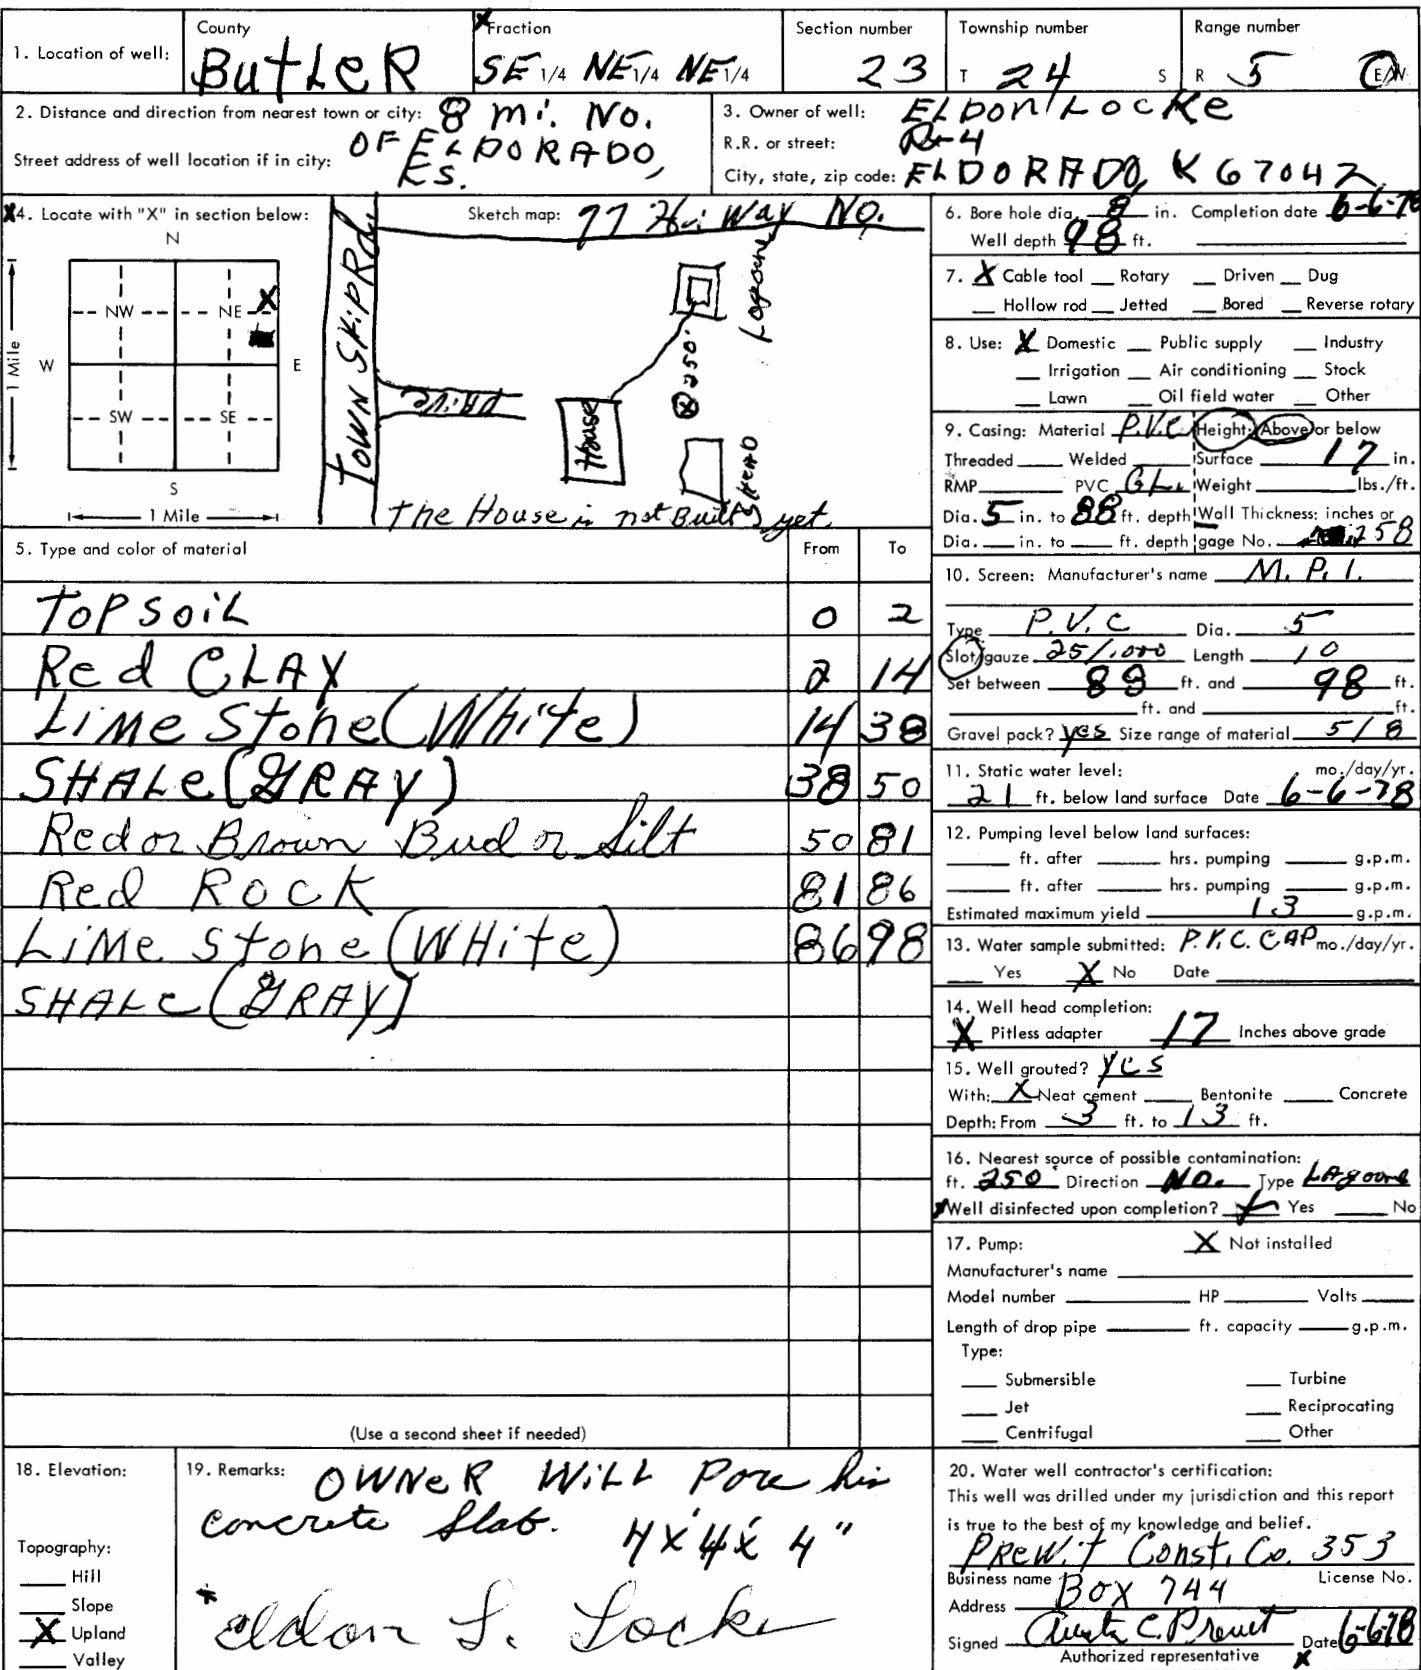 1. Location of well: County ButLeR Fraction SE 1/4 NE 1/4 NE 1/4 Section number 23 Township number T 24 S Range number R 5 E/W
2. Distance and direction from nearest town or city: 8 mi. No.
OF ELDORADO,
Street address of well location if in city: Ks.
3. Owner of well: ELDon Locke
R.R. or street: R-4
City, state, zip code: ELDORADO, K 67042
X4. Locate with "X" in section below:
N
NW NE X
W E
1 Mile
SW SE
S
1 Mile
Sketch map: 77 Hi Way No.
TOWN SKiP Rd.
Lagoone
250'
DRiVe
House
the House is not Built yet.
5. Type and color of material From To
TOPSoiL 0 2
Red CLAY 2 14
Lime Stone (White) 14 38
SHALe (GRAY) 38 50
Red or Brown Bud or Silt 50 81
Red ROCK 81 86
LiMe Stone (WHite) 86 98
SHALe (GRAY)
(Use a second sheet if needed)
6. Bore hole dia. 8 in. Completion date 6-6-78
Well depth 98 ft.
7. X Cable tool __ Rotary __ Driven __ Dug
__ Hollow rod __ Jetted __ Bored __ Reverse rotary
8. Use: X Domestic __ Public supply __ Industry
__ Irrigation __ Air conditioning __ Stock
__ Lawn __ Oil field water __ Other
9. Casing: Material P.V.C Height: Above or below
Threaded ____ Welded ____ Surface 17 in.
RMP ____ PVC GL. Weight ____ lbs./ft.
Dia. 5 in. to 88 ft. depth Wall Thickness: inches or
Dia. ___ in. to ___ ft. depth gage No. .258
10. Screen: Manufacturer's name M. P. I.
Type P.V.C Dia. 5
Slot/gauze 25/1000 Length 10
Set between 88 ft. and 98 ft.
____ ft. and ____ ft.
Gravel pack? yes Size range of material 5/8
11. Static water level: mo./day/yr.
21 ft. below land surface Date 6-6-78
12. Pumping level below land surfaces:
____ ft. after ____ hrs. pumping ____ g.p.m.
____ ft. after ____ hrs. pumping ____ g.p.m.
Estimated maximum yield 13 g.p.m.
13. Water sample submitted: P.V.C. CAP mo./day/yr.
__ Yes X No Date ____
14. Well head completion:
X Pitless adapter 17 Inches above grade
15. Well grouted? YES
With: X Neat cement ____ Bentonite ____ Concrete
Depth: From 3 ft. to 13 ft.
16. Nearest source of possible contamination:
ft. 250 Direction NO. Type LAgoone
Well disinfected upon completion? X Yes ____ No
17. Pump: X Not installed
Manufacturer's name ____
Model number ____ HP ____ Volts ____
Length of drop pipe ____ ft. capacity ____ g.p.m.
Type:
__ Submersible __ Turbine
__ Jet __ Reciprocating
__ Centrifugal __ Other
18. Elevation:
Topography:
__ Hill
__ Slope
X Upland
__ Valley
19. Remarks: OWNeR WiLL Pore his
concrete Slab. 4'x4'x 4"
* Eldon L. Locke
20. Water well contractor's certification:
This well was drilled under my jurisdiction and this report
is true to the best of my knowledge and belief.
PReWit Const. Co. 353
Business name License No.
Address BOX 744
Signed C. Prewit Date 6-6-78
Authorized representative X